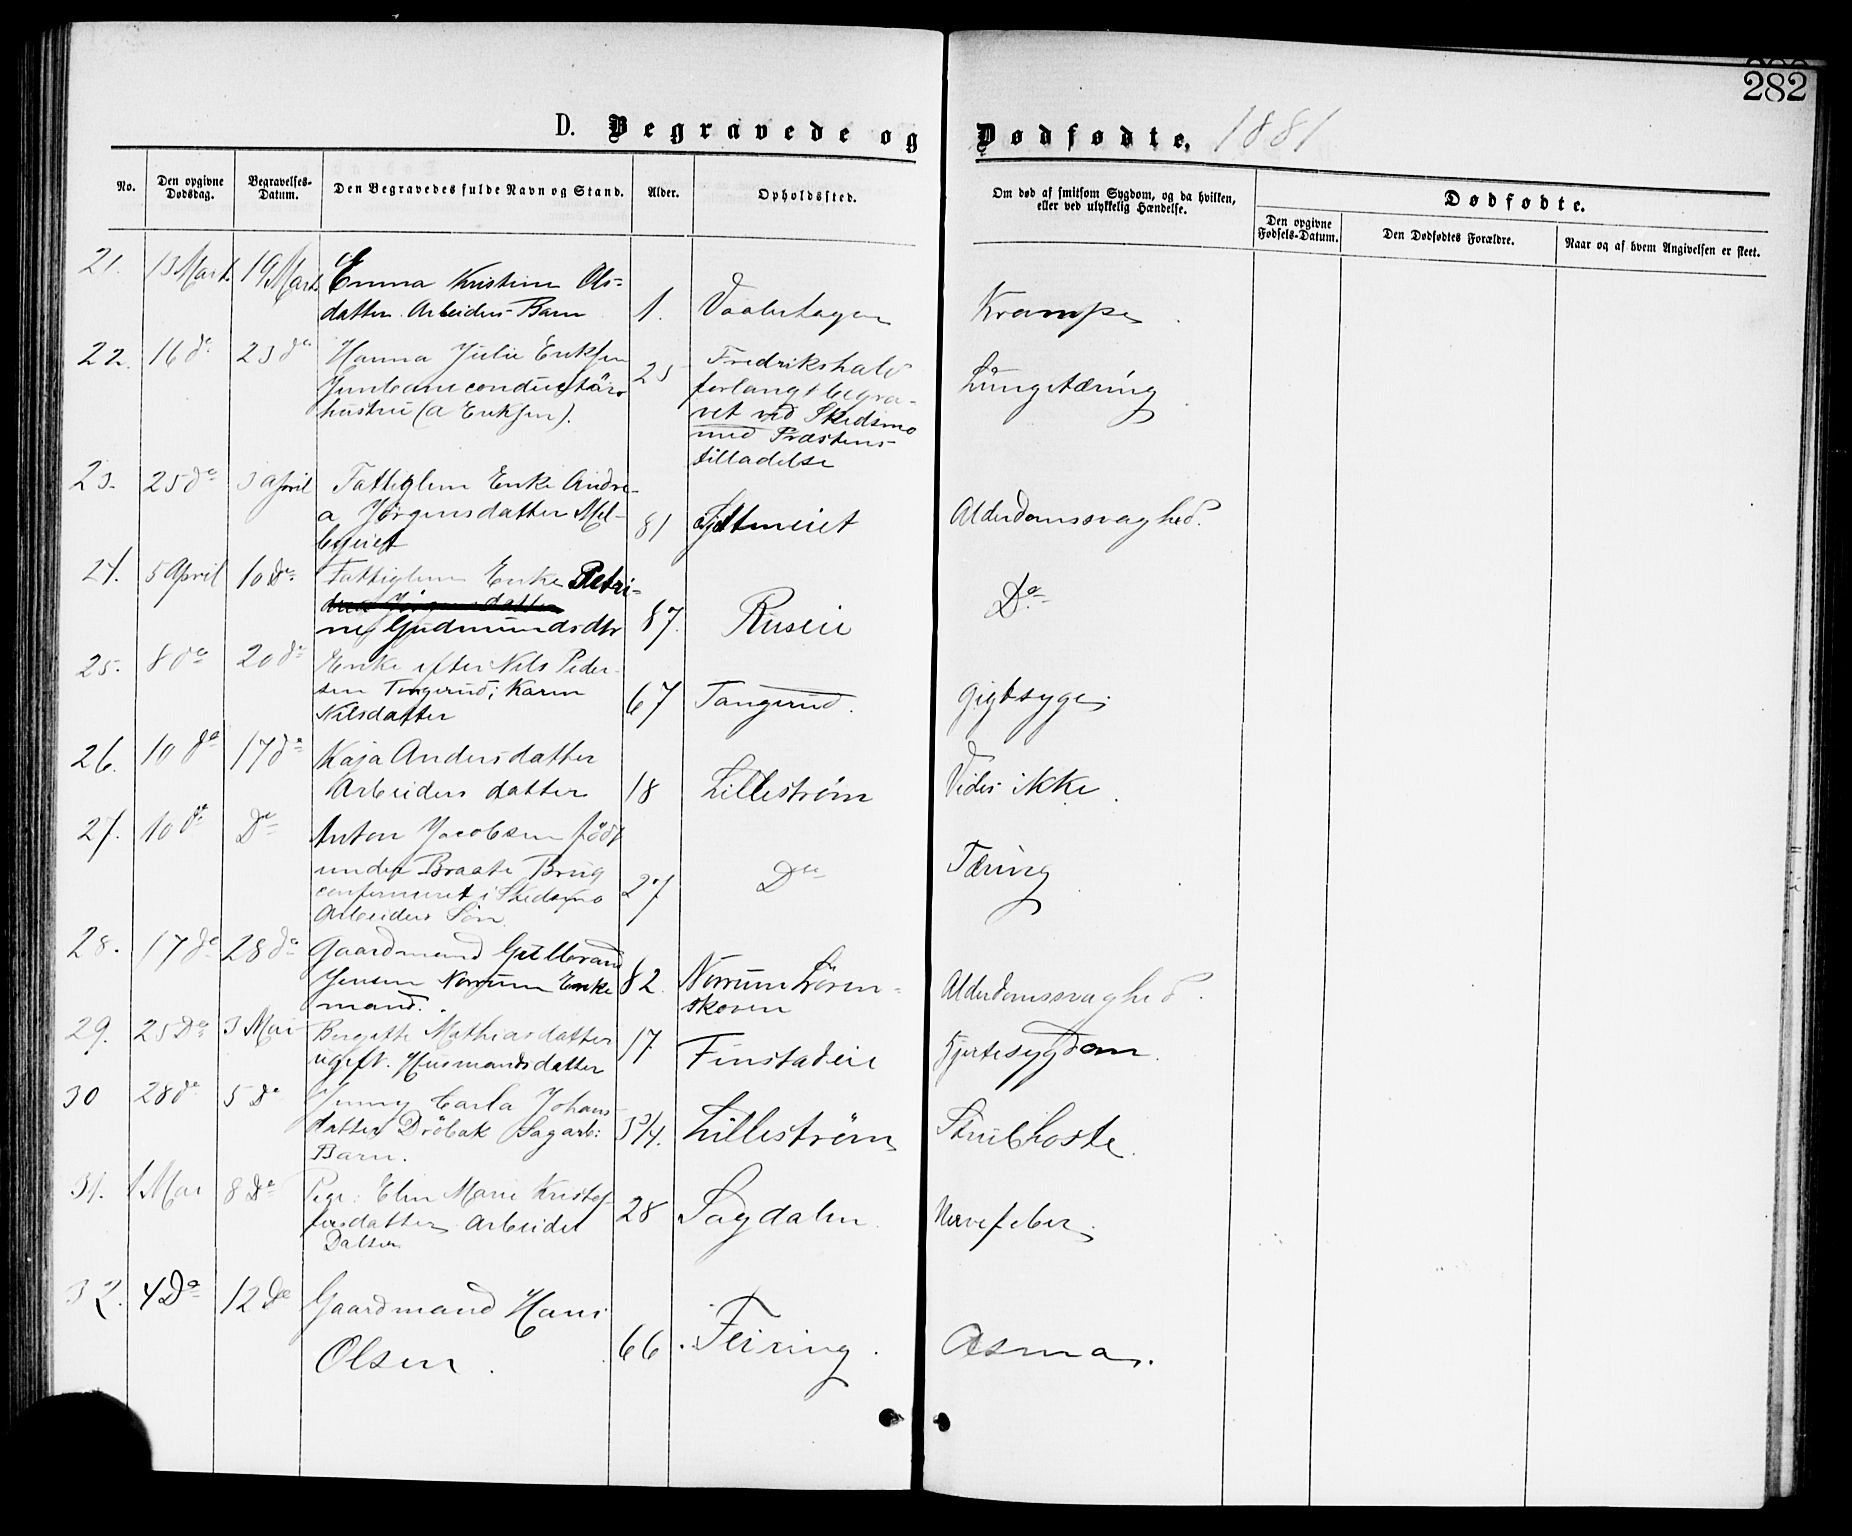 282
D. Begravede og Dødfødte, 1881
No.
Den opgivne Dødsdag.
Begravelses-Datum.
Den Begravedes fulde Navn og Stand.
Alder.
Opholdssted.
Om død af smitsom Sygdom, og da hvilken, eller ved ulykkelig Hændelse.
Dødfødte.
Den opgivne Fødsels-Datum.
Den Dødfødtes Forældre.
Naar og af hvem Angivelsen er skeet.
21. 13 Marts 19 Marts Emma Kristine Ols-
datter Arbeiders Barn 1. Krampe
22. 16 do 23 do Hanna Julie Eriksen 25 Fredrikshald
Jernbaneconductörs forlangt begra- Lungetæring
hustru (A Eriksen). vet ved Skedsmo
med Præstens
tilladelse
23. 25 do 3 April Fattiglem Enke Andre-
a Jørgensdatter 81 Alderdomssvaghed.
24. 5 April 10 Do Fattiglem Enke Petri-
ne Gudmundsdtr 87. Ruseie Do
25. 8 do 20 do Enke efter Nils Peder-
sen Tangerud; Karen 67 Tangerud. Gigtsyge
Nilsdatter
26. 10 do 17 do Kaja Andersdatter
Arbeiders datter 18 Lillestrøm Vides ikke.
27. 10 do Do Anton Jacobsen født
under Braate Brug 27 Do Tæring
confirmeret i Skedsmo
Arbeiders Søn
28. 17 do 28 do Gaardmand Gulbrand
Jensen Norrum Enke 82. Norrum Løren- Alderdomssvaghed.
mand. skoven
29. 25 Do 3 Mai Birgitte Mathiasdatter
ugift. Husmandsdatter 17 Finstadeie Hjertesygdom.
30 28 do 5 Do Jenny Carla Johans-
datter Drøbak Sagarb: 3 3/4. Lillestrøm Strubehoste.
Barn.
31. 1 Mai 8 Do Pige: Elen Marie Kristof-
fersdatter Arbeider 28 Sagdalen. Nervefeber.
32. 4 Do 12 Do Gaardmand Hans
Olsen. 66. Feiring. Asma.